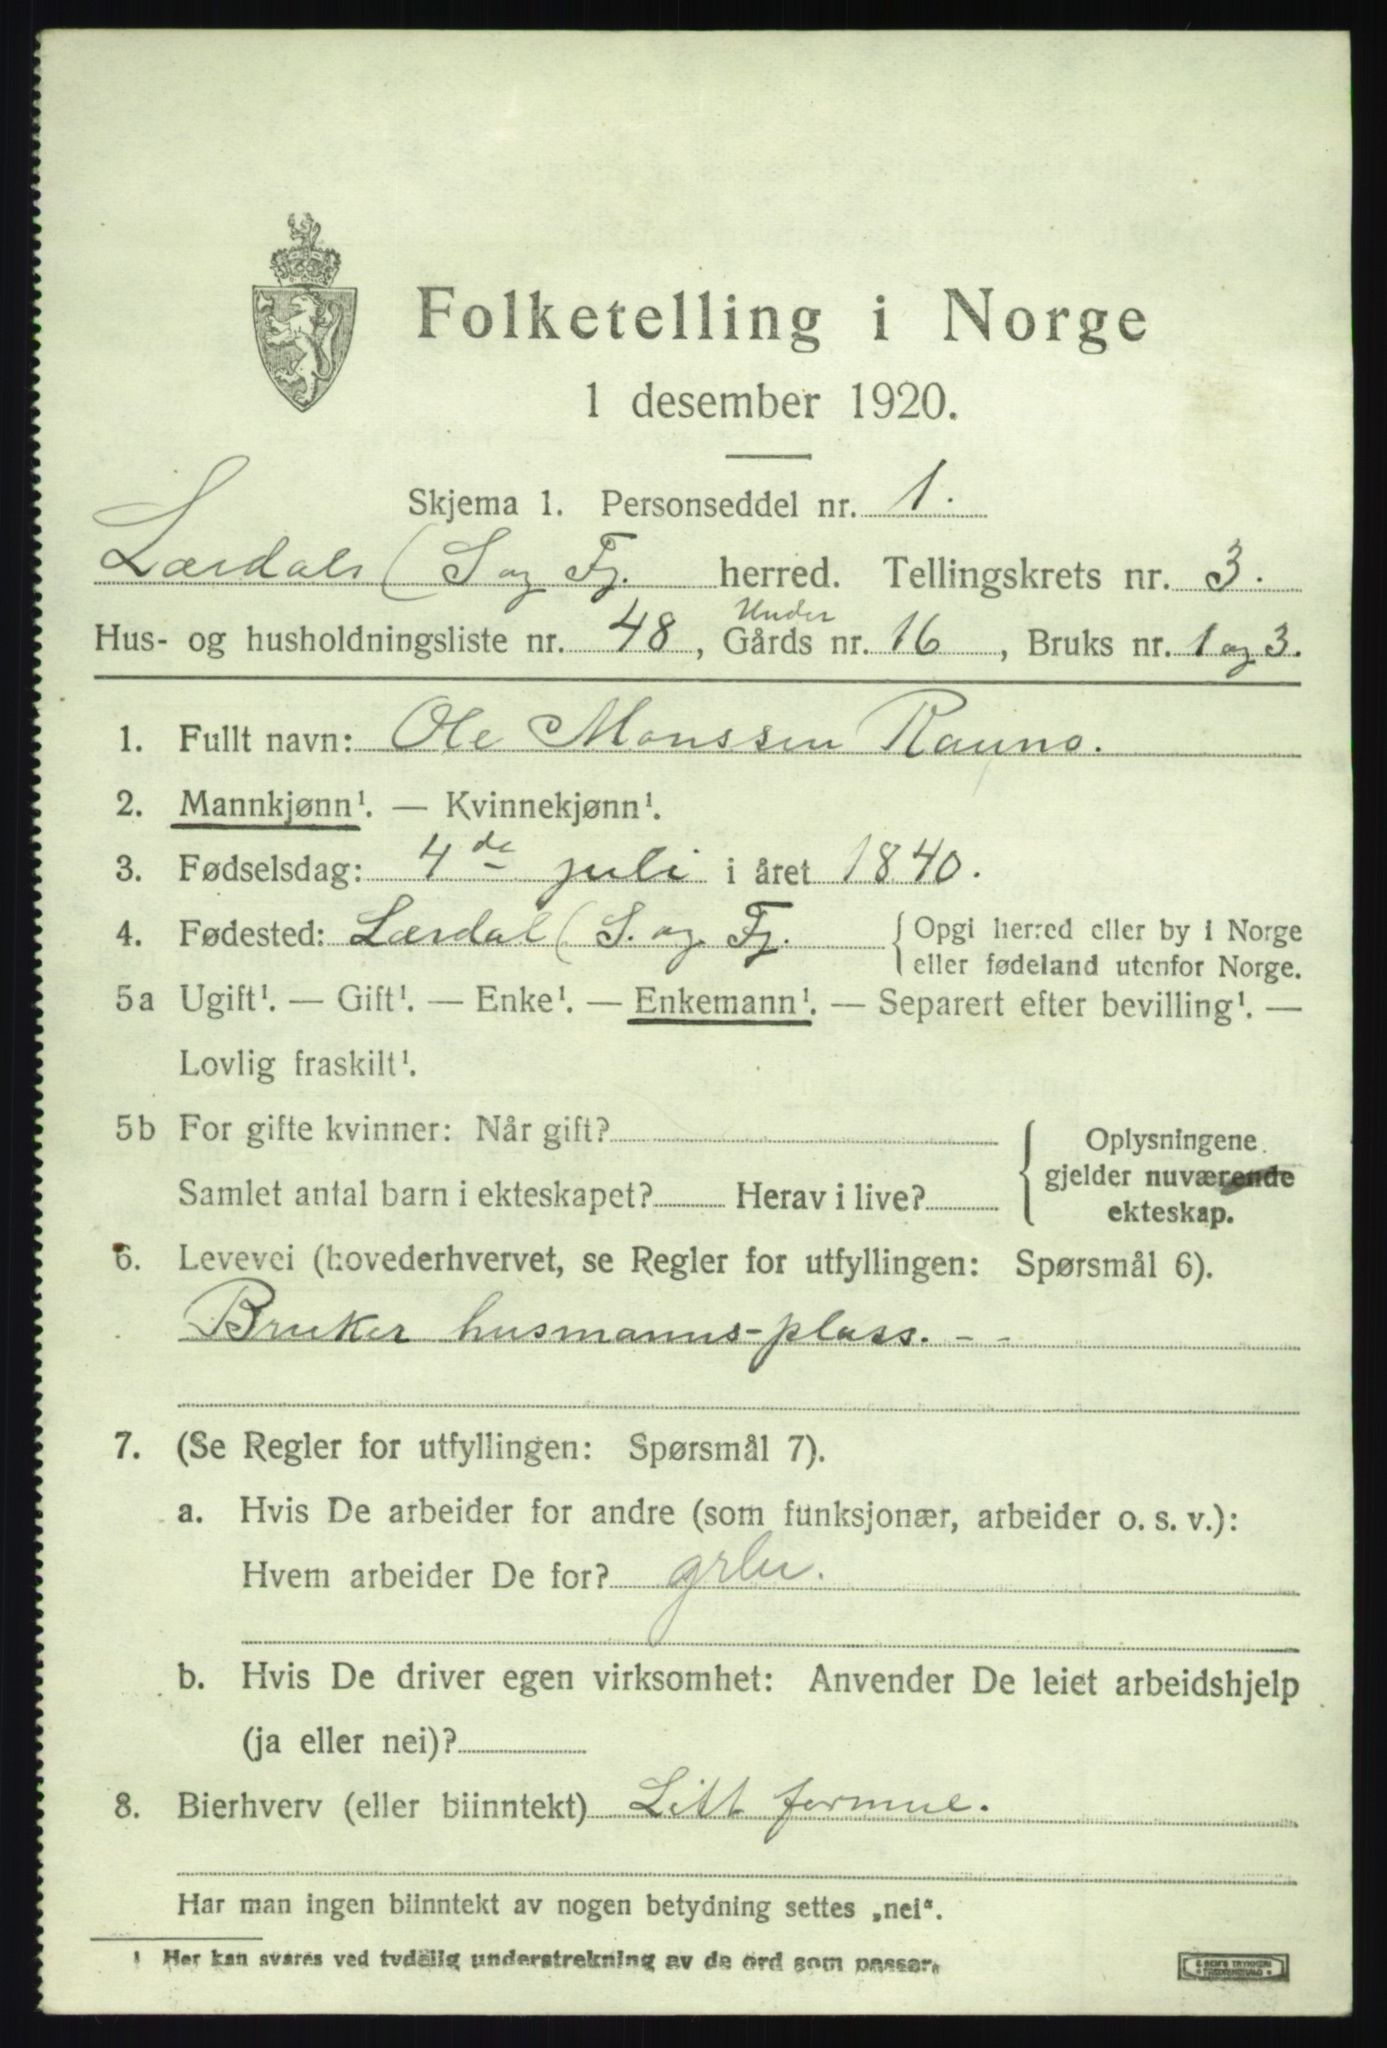 Folketelling i Norge
1 desember 1920.
Skjema 1. Personseddel nr. 1.
Lærdal (S og Fj. herred. Tellingskrets nr. 3.
Under
Hus- og husholdningsliste nr. 48, Gårds nr. 16, Bruks nr. 1 og 3.
1. Fullt navn: Ole Monssen
2. Mannkjønn¹. — Kvinnekjønn¹.
3. Fødselsdag: 4de juli i året 1840.
4. Fødested: Lærdal (S. og Fj. { Opgi herred eller by i Norge
eller fødeland utenfor Norge.
5a Ugift¹. — Gift¹. — Enke¹. — Enkemann¹. — Separert efter bevilling¹. —
Lovlig fraskilt¹.
5b For gifte kvinner: Når gift?
Samlet antal barn i ekteskapet? Herav i live?
{ Oplysningene
gjelder nuværende
ekteskap.
6. Levevei (hovederhvervet, se Regler for utfyllingen: Spørsmål 6).
Bruker husmanns-plass. - -
7. (Se Regler for utfyllingen: Spørsmål 7).
a. Hvis De arbeider for andre (som funksjonær, arbeider o. s. v.):
Hvem arbeider De for?
b. Hvis De driver egen virksomhet: Anvender De leiet arbeidshjelp
(ja eller nei)?
8. Bierhverv (eller biinntekt) Litt formue.
Har man ingen biinntekt av nogen betydning settes „nei“.
¹ Her kan svares ved tydelig understrekning av de ord som passer.